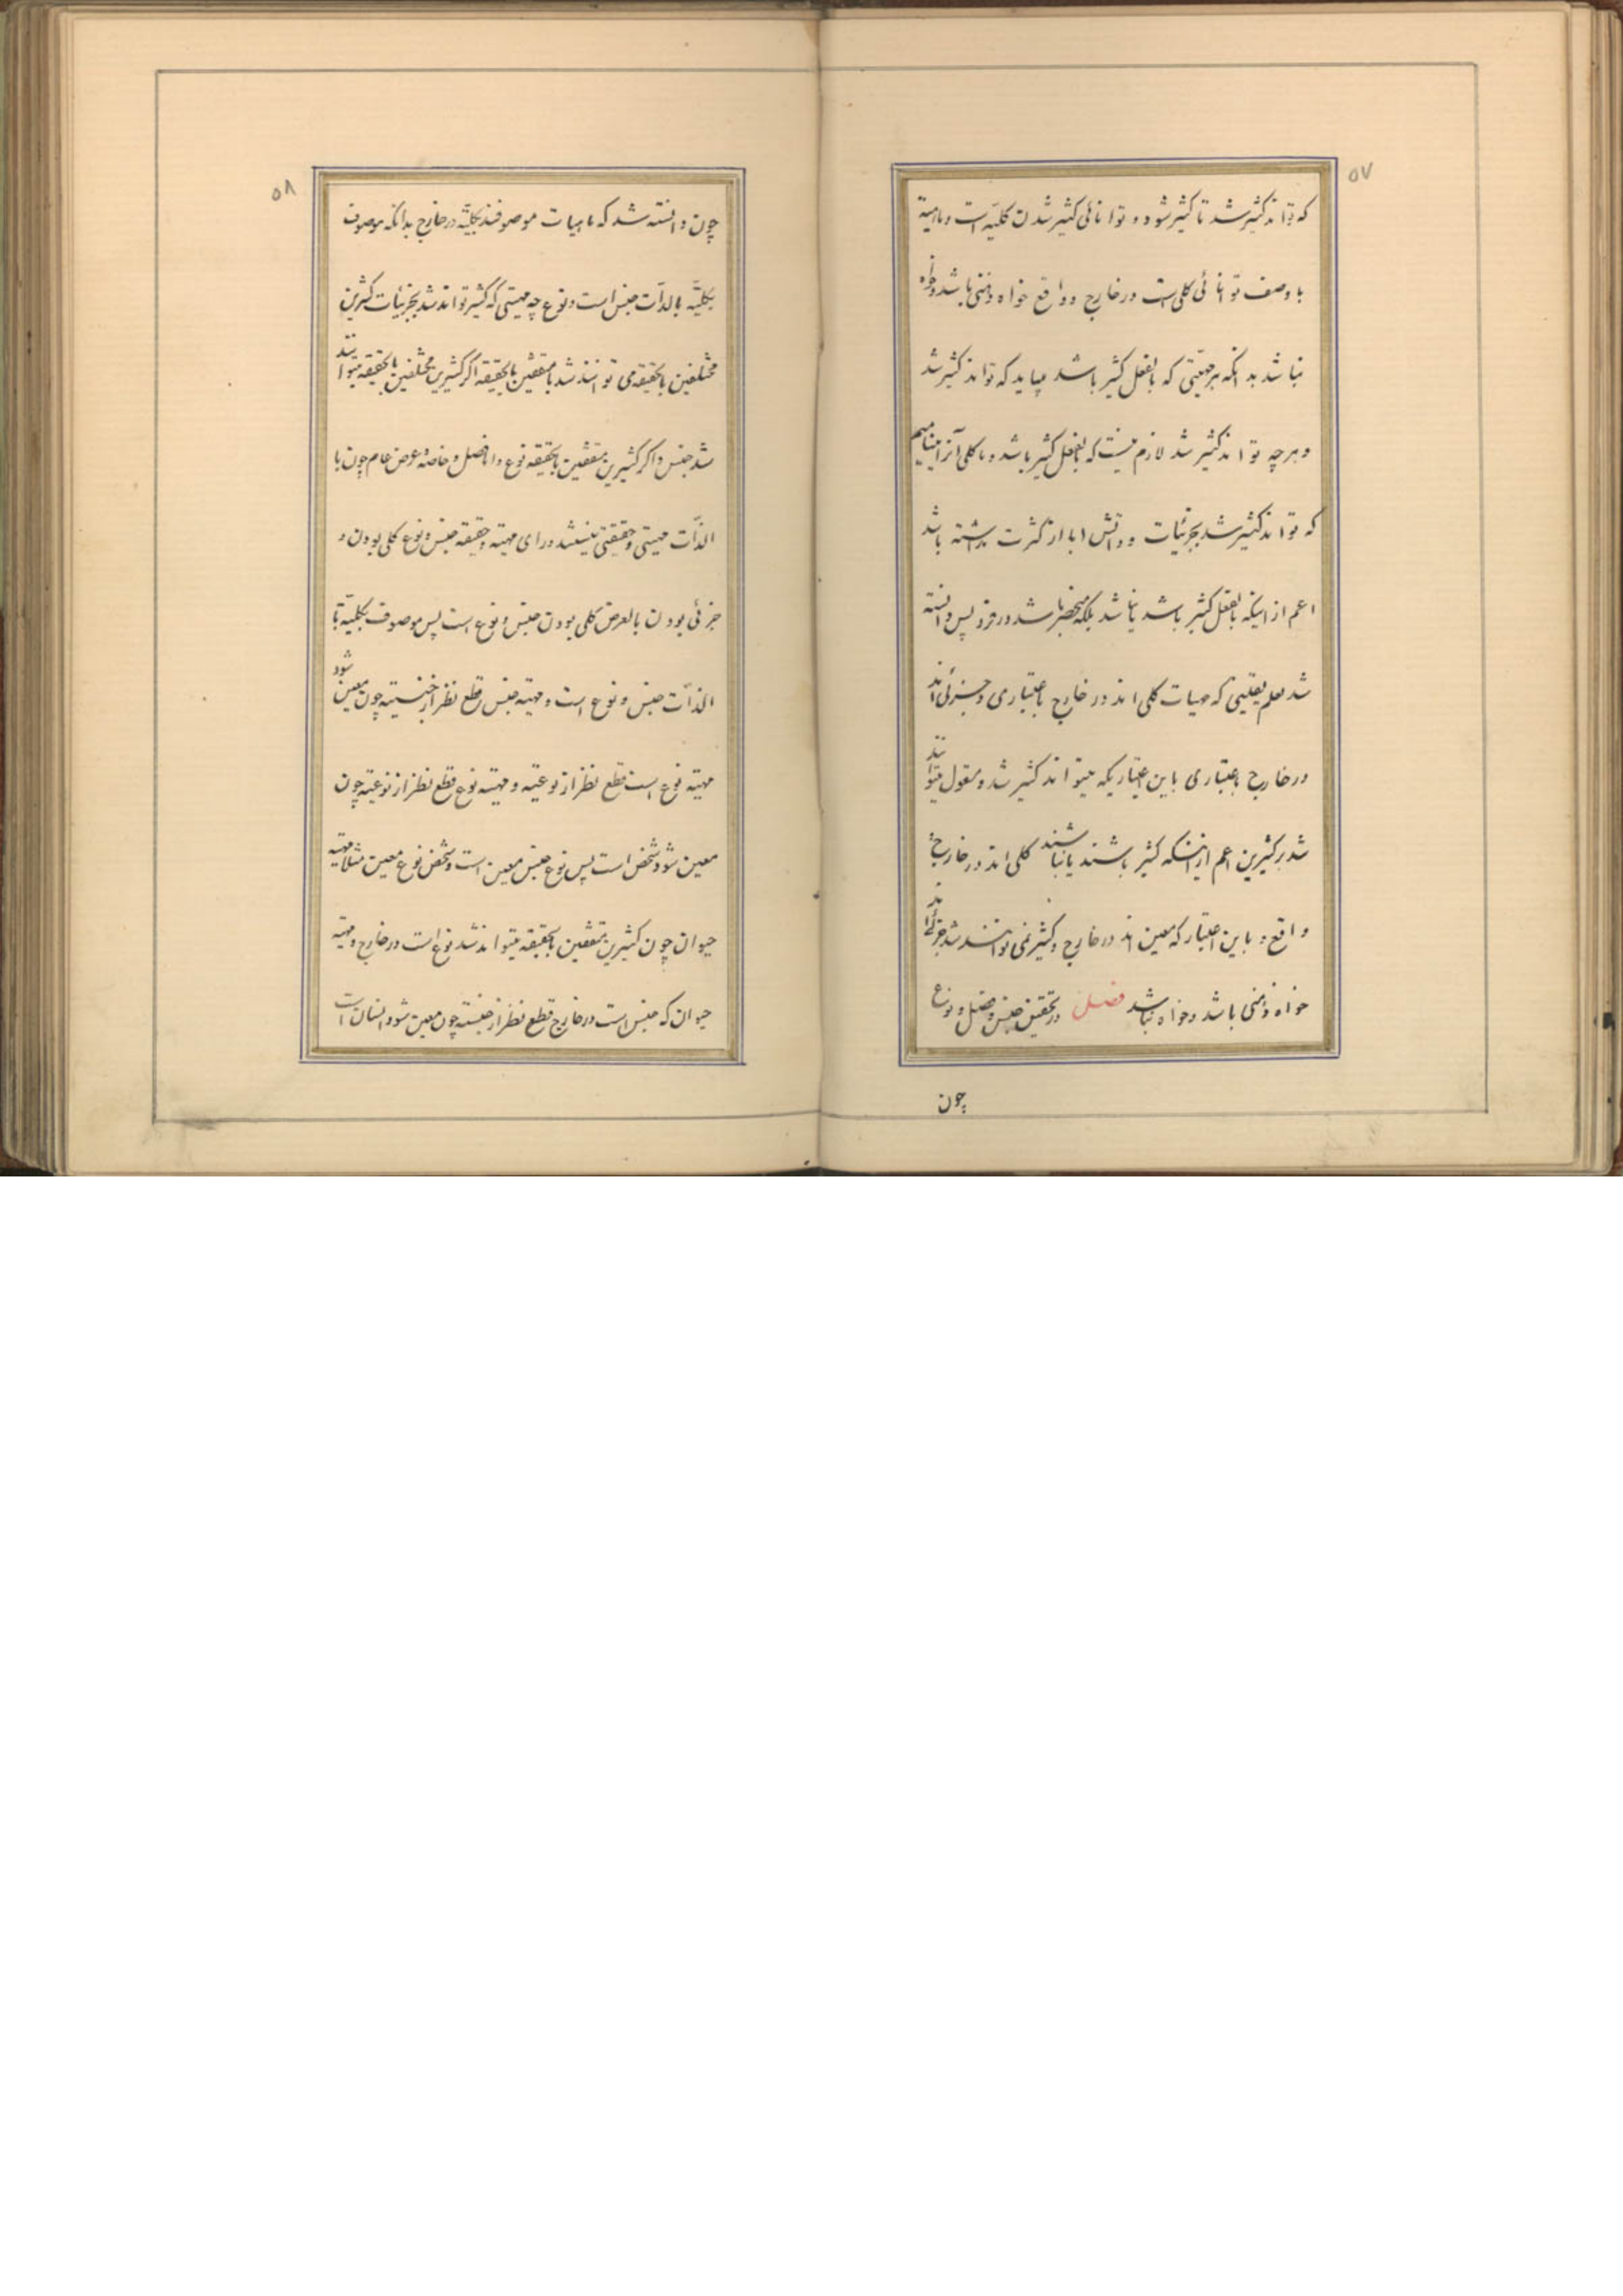 ۵۷
که تواند کثیر شد تا کثیر شود و توانائی کثیر شدن کلیه است و ماهیة
با وصف توانائی کلی است در خارج و واقع خواه ذهنی باشد و خواه
نباشد بدانکه هر حقیقتی که بالفعل کثیر باشد میباید که تواند کثیر شد
و هرچه تواند کثیر شد لازم نیست که بالفعل کثیر باشد و ما کلی آنرا مینامیم
که تواند کثیر شد بجزئیات و ذاتش ابا از کثرت نداشته باشد
اعم از اینکه بالفعل کثیر باشد یا نباشد بلکه منحصر باشد در فرد پس دانسته
شد بعلم یقینی که مهیات کلی اند در خارج باعتباری و جزئی اند
در خارج باعتباری باین اعتبار یکه میتواند کثیر شد و مقول میتوانند
شد بر کثیرین اعم از اینکه کثیر باشند یا نباشند کلی اند در خارج
واقع و باین اعتبار که معین اند در خارج و کثیر نمی توانند شد جزئی اند
خواه ذهنی باشد و خواه نباشد فصل در تحقیق جنس و فصل و نوع
چون
۵۸
چون دانسته شد که ماهیات موصوفند بکلیّه در خارج بدانکه موصوف
بکلیّه بالذّات جنس است و نوع چه مهیتی که کثیر تواند شد بجزئیات کثیرین
مختلفین بالحقیقه می توانند شد یا متفقین بالحقیقه اگر کثیرین مختلفین بالحقیقه میتوانند
شد جنس و اگر کثیرین متفقین بالحقیقه نوع و اما فصل و خاصه و عرض عام چون با
الذّات مهیتی و حقیقتی نیستند ورای مهیته و حقیقه جنس و نوع کلی بودن و
جزئی بودن بالعرض کلی بودن جنس و نوع است پس موصوف بکلیّه با
الذّات جنس و نوع است و مهیته جنس قطع نظر از جنسیته چون معین شود
مهیته نوع است قطع نظر از نوعیته و مهیته نوع قطع نظر از نوعیته چون
معین شود شخص است پس نوع جنس معین است و شخص نوع معین مثلا مهیته
حیوان چون کثیرین متفقین بالحقیقه میتواند شد نوع است در خارج و مهیته
حیوان که جنس است در خارج قطع نظر از جنسیته چون معین شود انسان است